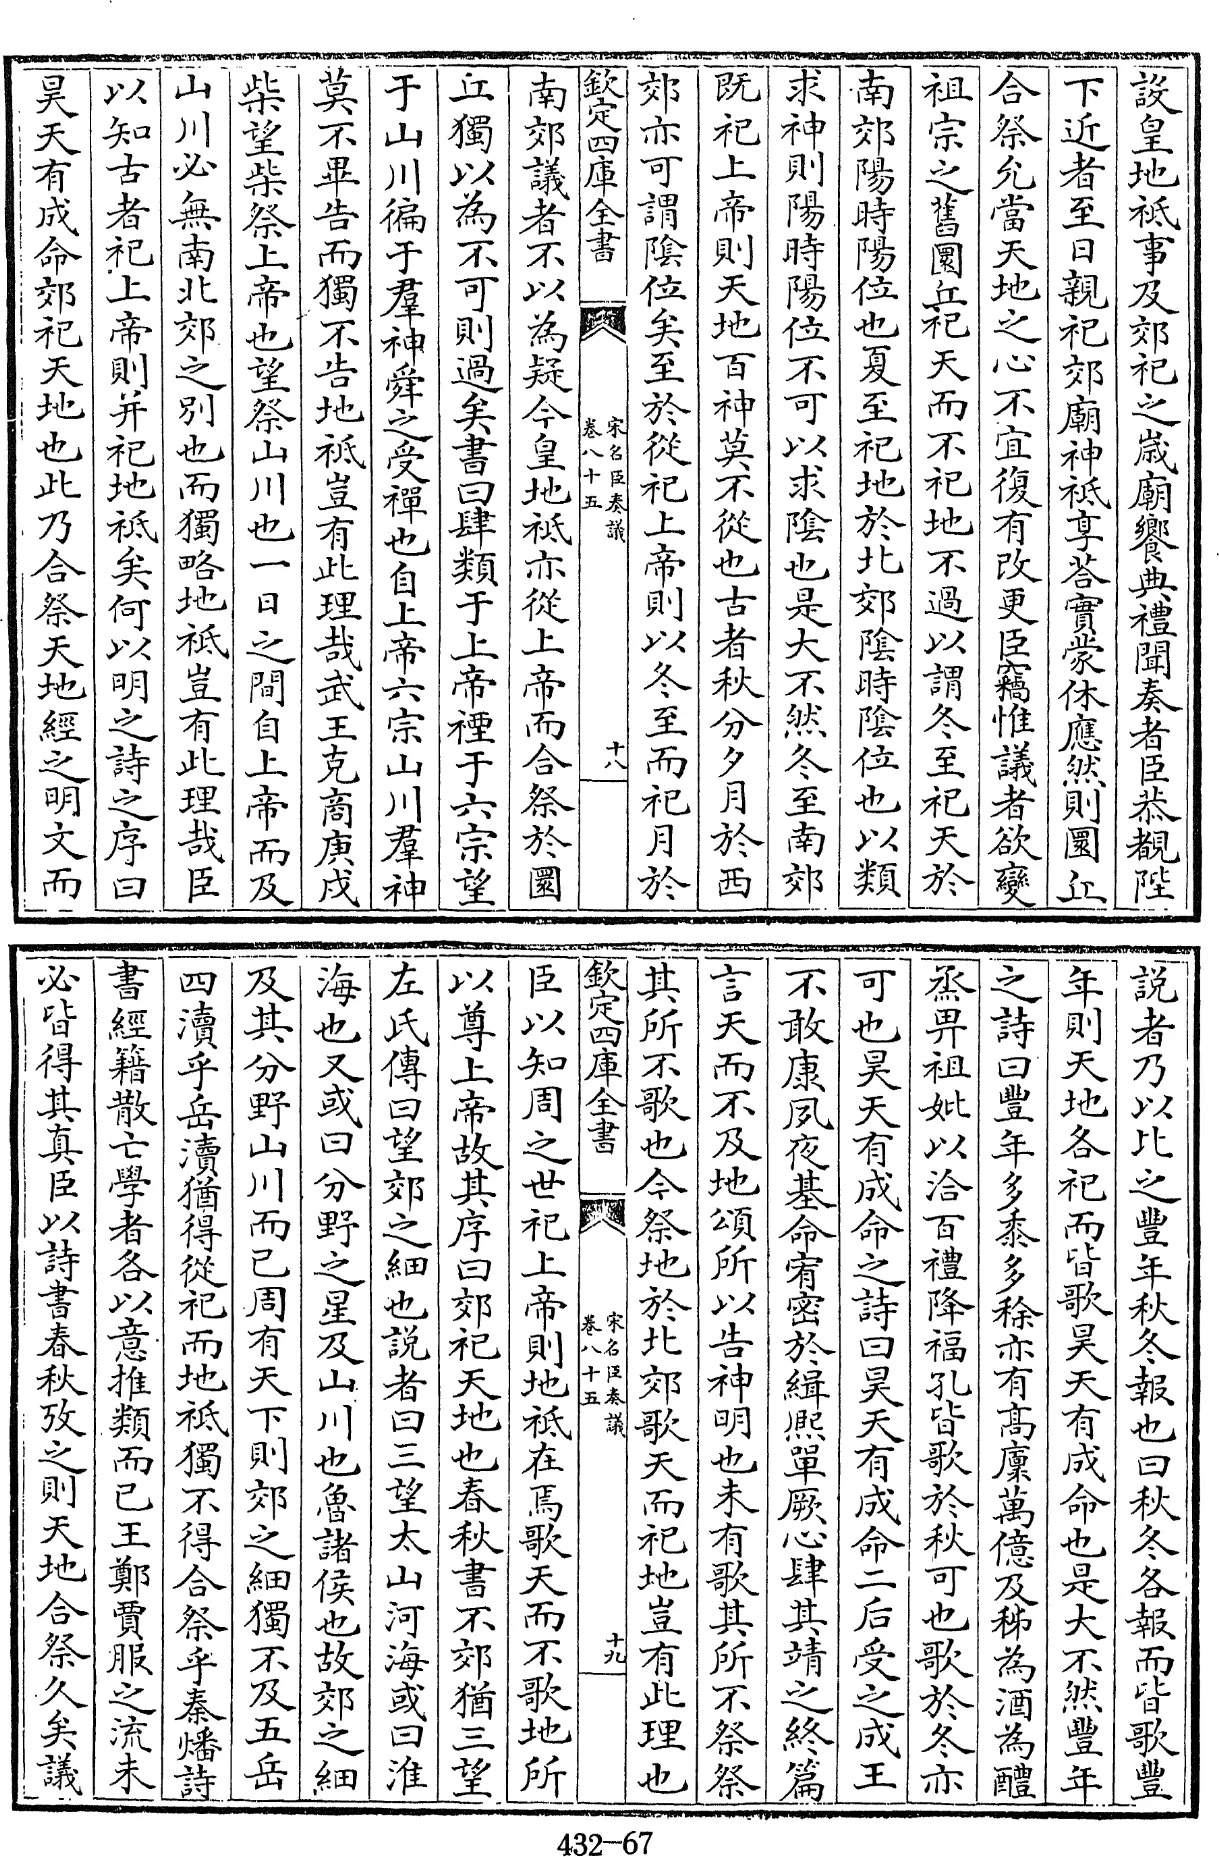 設皇地祗事及郊祀之歳廟饗典禮聞奏者臣恭覩陛
下近者至日親祀郊廟神祗享荅實蒙休應然則圜丘
合祭允當天地之心不宜復有改更臣竊惟議者欲變
祖宗之舊圜丘祀天而不祀地不過以謂冬至祀天於
南郊陽時陽位也夏至祀地於北郊陰時陰位也以類
求神則陽時陽位不可以求陰也是大不然冬至南郊
既祀上帝則天地百神莫不從也古者秋分夕月於西
郊亦可謂陰位矣至於從祀上帝則以冬至而祀月於
欽定四庫全書
宋名臣奏議
卷八十五
十八
南郊議者不以為疑今皇地祗亦從上帝而合祭於圜
丘獨以為不可則過矣書曰肆類于上帝禋于六宗望
于山川徧于羣神舜之受禪也自上帝六宗山川羣神
莫不畢告而獨不告地祗豈有此理哉武王克商庚戌
柴望柴祭上帝也望祭山川也一日之間自上帝而及
山川必無南北郊之别也而獨略地祗豈有此理哉臣
以知古者祀上帝則并祀地祗矣何以明之詩之序曰
昊天有成命郊祀天地也此乃合祭天地經之明文而
說者乃以比之豐年秋冬報也曰秋冬各報而皆歌豐
年則天地各祀而皆歌昊天有成命也是大不然豐年
之詩曰豐年多黍多稌亦有髙廩萬億及秭為酒為醴
烝畀祖妣以洽百禮降福孔皆歌於秋可也歌於冬亦
可也昊天有成命之詩曰昊天有成命二后受之成王
不敢康夙夜基命宥密於緝熙單厥心肆其靖之終篇
言天而不及地頌所以告神明也未有歌其所不祭祭
其所不歌也今祭地於北郊歌天而祀地豈有此理也
欽定四庫全書
宋名臣奏議
卷八十五
十九
臣以知周之世祀上帝則地祗在焉歌天而不歌地所
以尊上帝故其序曰郊祀天地也春秋書不郊猶三望
左氏傳曰望郊之細也説者曰三望太山河海或曰淮
海也又或曰分野之星及山川也魯諸侯也故郊之細
及其分野山川而已周有天下則郊之細獨不及五岳
四瀆乎岳瀆猶得從祀而地祗獨不得合祭乎秦燔詩
書經籍散亡學者各以意推類而已王鄭賈服之流未
必皆得其真臣以詩書春秋攷之則天地合祭久矣議
432-67